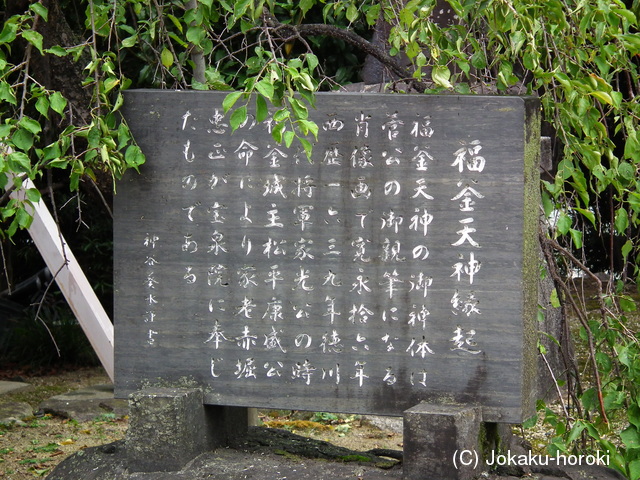 福釜天神縁起
福釜天神の御神体は
菅公の御親筆になる
肖像画で寛永拾六年
西暦一六三九年徳川
将軍家光公の時
福釜城主松平康盛公
の命により家老赤堀
忠正が宝泉院に奉じ
たものである
神谷
書
(C) Jokaku-horoki